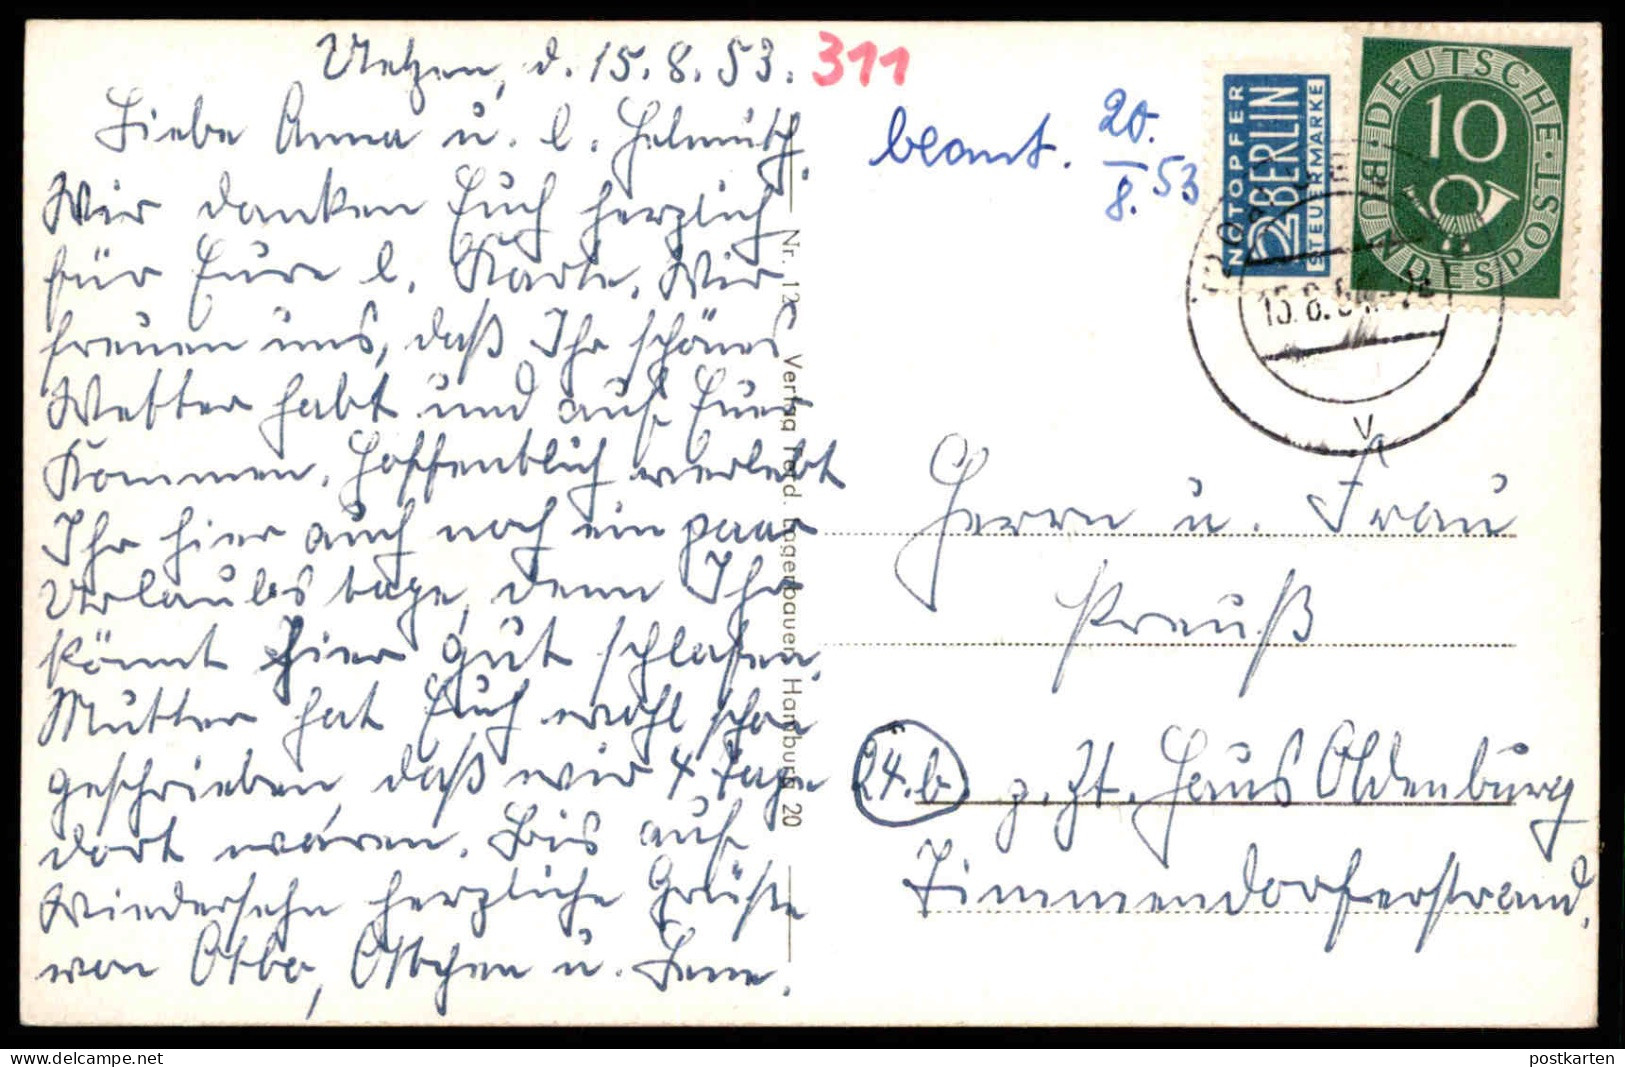 Uelzen, d. 15.8.53.
311
Liebe Anna u. l. Helmuth,
Wir danken Euch herzlich
für Eure l. Karte. Wir
freuen uns, daß Ihr schönes
Wetter habt und auf Euer
Kommen. Hoffentlich verlebt
Ihr hier auch noch ein paar
Urlaubstage, denn Ihr
könnt hier gut schlafen.
Mutter hat Euch wohl schon
geschrieben, daß wir 4 Tage
dort waren. Bis auf
Wiedersehn herzliche Grüße
von Otto, Ottchen u. Lene.
Nr. 12 Verlag Ferd. Lagerbauer, Hamburg 20
beant. 20.
8. 53
NOTOPFER
2 BERLIN
STEUERMARKE
DEUTSCHE BUNDESPOST
10
15.8.
V
Herrn u. Frau
Preuß
24.b z. Zt. Haus Oldenburg
Timmendorferstrand.
postkarten